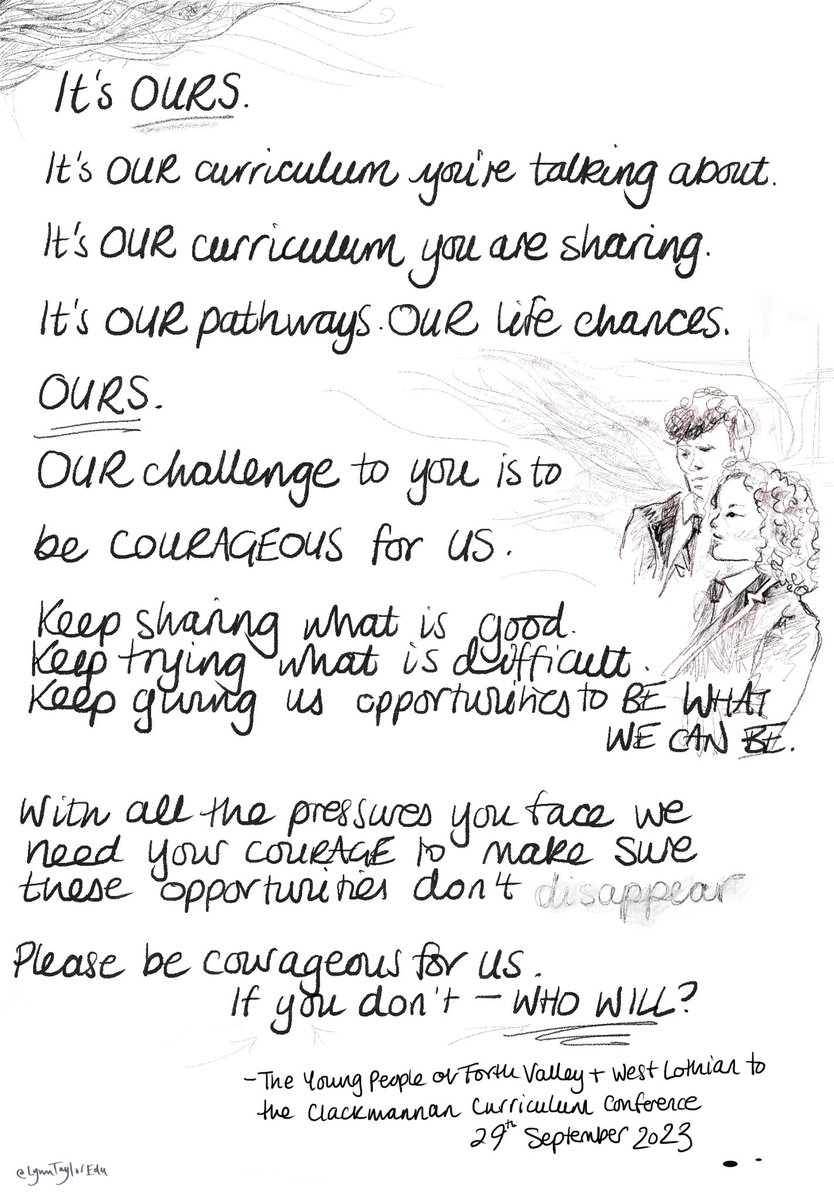 It's OURS.
It's OUR curriculum you're talking about.
It's OUR curriculum you are sharing.
It's OUR pathways. OUR life chances.
OURS.
OUR challenge to you is to
be COURAGEOUS for us.
Keep sharing what is good.
Keep trying what is difficult.
Keep giving us opportunities to BE WHAT
WE CAN BE.
With all the pressures you face we
need your COURAGE to make sure
these opportunities don't disappear
Please be courageous for us.
If you don't – WHO WILL?
– The Young People of Forth Valley + West Lothian to
the Clackmannan Curriculum Conference
29th September 2023
@LynnTaylorEdu